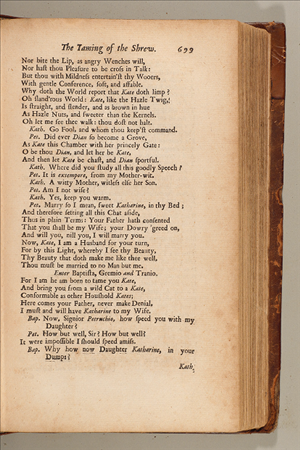 The Taming of the Shrew. 699
Nor bite the Lip, as angry Wenches will,
Nor hast thou Pleasure to be cross in Talk:
But thou with Mildness entertain'st thy Wooers,
With gentle Conference, soft, and affable.
Why doth the World report that Kate doth limp?
Oh sland'rous World: Kate, like the Hazle Twig,
Is straight, and slender, and as brown in hue
As Hazle Nuts, and sweeter than the Kernels.
Oh let me see thee walk: thou dost not halt.
Kath. Go Fool, and whom thou keep'st command.
Pet. Did ever Dian so become a Grove,
As Kate this Chamber with her princely Gate:
O be thou Dian, and let her be Kate,
And then let Kate be chast, and Dian sportful.
Kath. Where did you study all this goodly Speech?
Pet. It is extempore, from my Mother-wit.
Kath. A witty Mother, witless else her Son.
Pet. Am I not wise?
Kath. Yes, keep you warm.
Pet. Marry so I mean, sweet Katharine, in thy Bed;
And therefore setting all this Chat aside,
Thus in plain Terms: Your Father hath consented
That you shall be my Wife; your Dowry 'greed on,
And will you, nill you, I will marry you.
Now, Kate, I am a Husband for your turn,
For by this Light, whereby I see thy Beauty,
Thy Beauty that doth make me like thee well,
Thou must be married to no Man but me.
Enter Baptista, Gremio and Tranio.
For I am he am born to tame you Kate,
And bring you from a wild Cat to a Kate,
Conformable as other Houshold Kates;
Here comes your Father, never make Denial,
I must and will have Katharine to my Wife.
Bap. Now, Signior Petruchio, how speed you with my
Daughter?
Pet. How but well, Sir? How but well?
It were impossible I should speed amiss.
Bap. Why how now Daughter Katharine, in your
Dumps?
Kath.